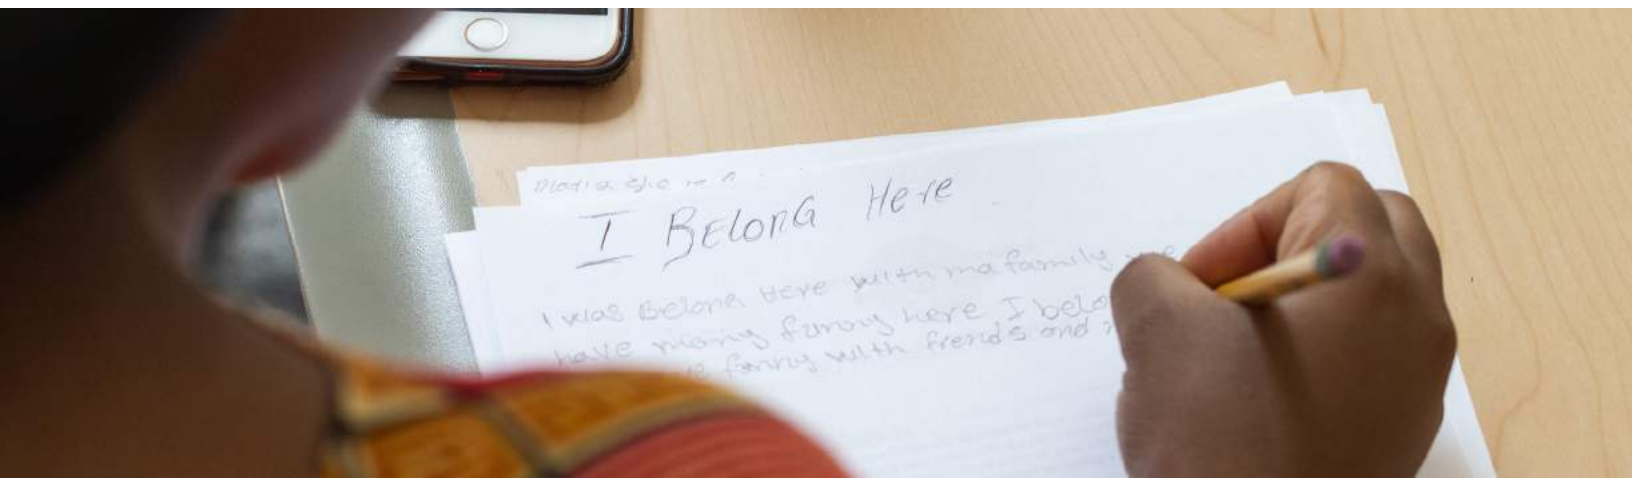 I BELONG Here
I was Belong Here with ma family we
have many funny here I belo
funny with frends and